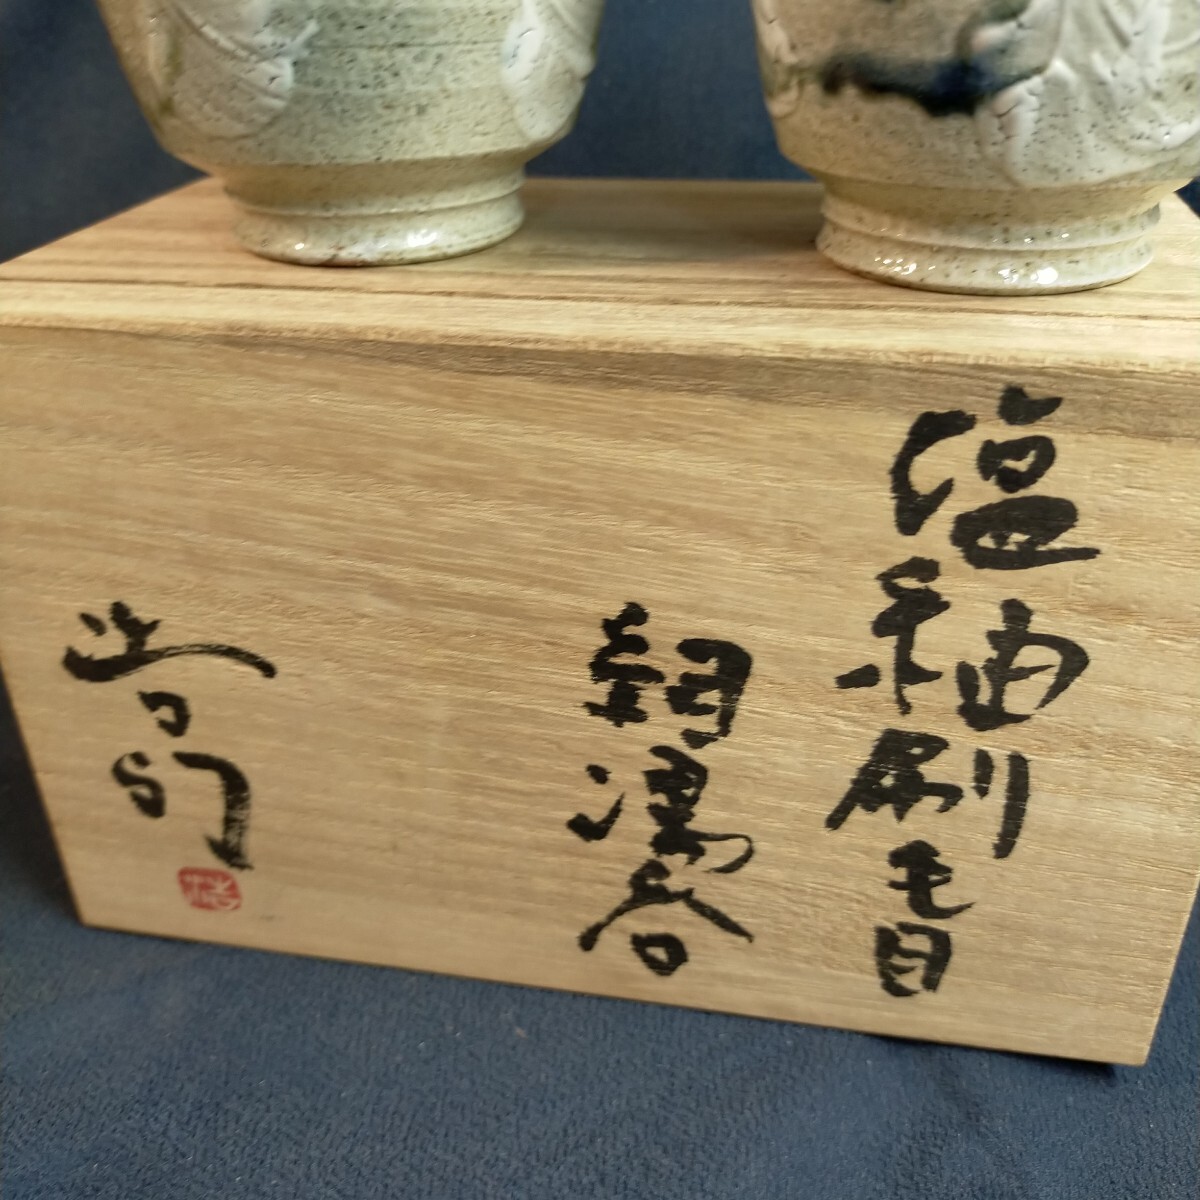 塩釉刷毛目
組湯呑